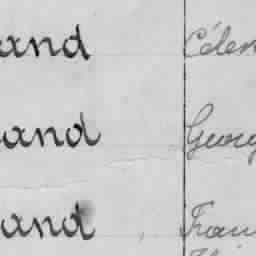 and Célen
and Georg
and Fran